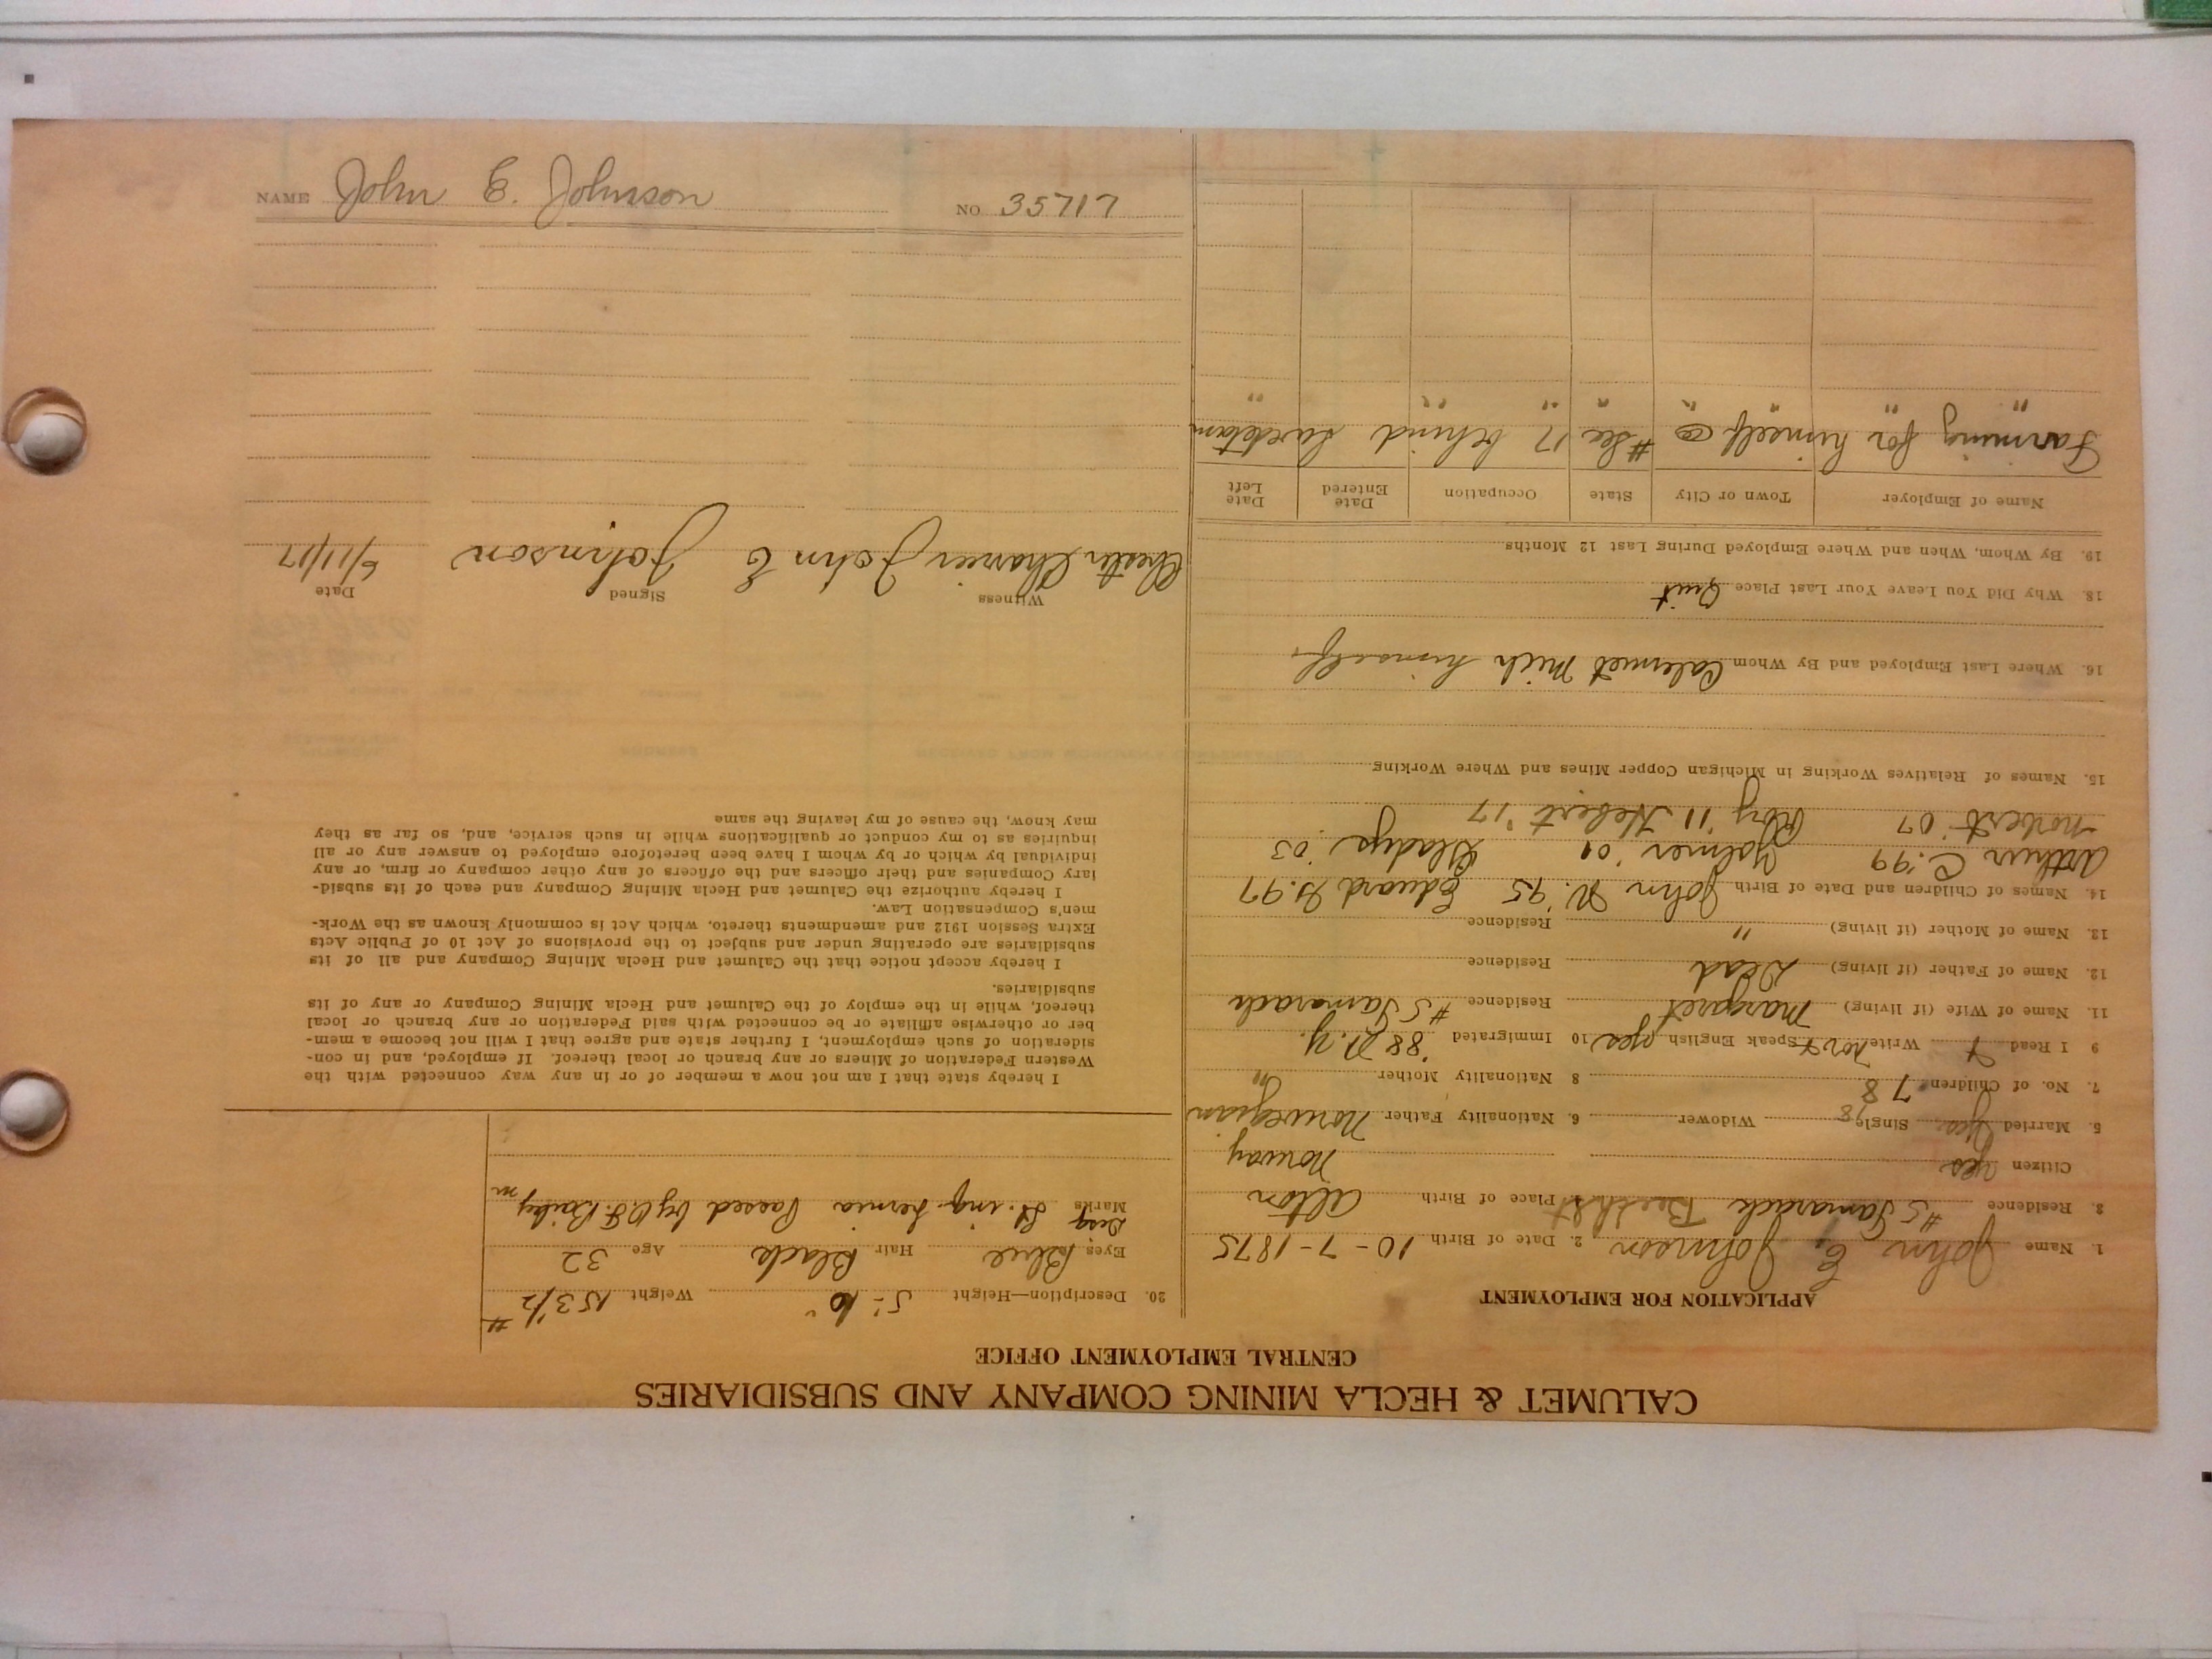 CALUMET & HECLA MINING COMPANY AND SUBSIDIARIES
CENTRAL EMPLOYMENT OFFICE
APPLICATION FOR EMPLOYMENT
1. Name John E. Johnson 2. Date of Birth 10-7-1875
3. Residence #5 Tamarack Place of Birth Alton
Citizen yes Norway
5. Married Yes. Single Widower 6. Nationality Father Norwegian
7. No. of Children 7 8 8 Nationality Mother "
9 I Read Write Speak English yes 10 Immigrated '88 N.Y.
11. Name of Wife (if living) Margaret Residence #5 Tamarack
12. Name of Father (if living) Dead Residence
13. Name of Mother (if living) " Residence
14. Names of Children and Date of Birth John N. '95 Edward G. 97
Arthur C. '99 '01 Gladys '03
Norbert '07 Roy '11 Hebert '17
15. Names of Relatives Working in Michigan Copper Mines and Where Working
16. Where Last Employed and By Whom Calumet Mich himself.
18. Why Did You Leave Your Last Place Quit
19. By Whom, When and Where Employed During Last 12 Months
Name of Employer Town or City State Occupation Date Entered Date Left
Farming for himself @ #Sec 17 behind
" " " " " " " "
20. Description—Height 5'-10" Weight 153 1/2 #
Eyes Blue Hair Black Age 32
Marks ing. hernia Passed by Bailey
I hereby state that I am not now a member of or in any way connected with the
Western Federation of Miners or any branch or local thereof. If employed, and in con-
sideration of such employment, I further state and agree that I will not become a mem-
ber or otherwise affiliate or be connected with said Federation or any branch or local
thereof, while in the employ of the Calumet and Hecla Mining Company or any of its
subsidiaries.
I hereby accept notice that the Calumet and Hecla Mining Company and all of its
subsidiaries are operating under and subject to the provisions of Act 10 of Public Acts
Extra Session 1912 and amendments thereto, which Act is commonly known as the Work-
men's Compensation Law.
I hereby authorize the Calumet and Hecla Mining Company and each of its subsid-
iary Companies and their officers and the officers of any other company or firm, or any
individual by which or by whom I have been heretofore employed to answer any or all
inquiries as to my conduct or qualifications while in such service, and, so far as they
may know, the cause of my leaving the same
Witness Signed Date
Chester John E Johnson 6/11/17
NAME John E. Johnson NO. 35717